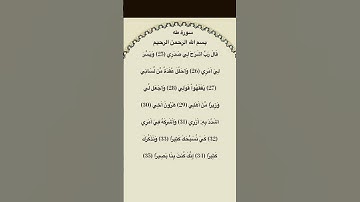 سورة طه
بسم الله الرحمن الرحيم
قال رب اشرح لي صدري (25) ويسر
لي أمري (26) واحلل عقدة من لساني
(27) يفقهوا قولي (28) واجعل لي
وزيرا من أهلي (29) هارون أخي (30)
اشدد به أزري (31) وأشركه في أمري
(32) كي نسبحك كثيرا (33) ونذكرك
كثيرا (34) إنك كنت بنا بصيرا (35)